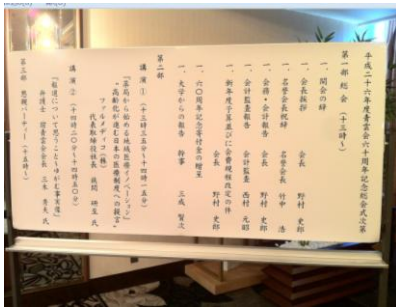 平成二十六年度青雲会六十周年記念総会式次第
第一部 総会（十三時〜）
一、開会の辞
一、会長挨拶 会長 野村 史郎
一、名誉会長祝辞 名誉会長 竹中 浩
一、会務・会計報告 会長 野村 史郎
一、会計監査報告 会計監査 西村 元昭
一、新年度予算並びに会費規程改定の件
会長 野村 史郎
一、六〇周年記念寄付金の贈呈
一、大学からの報告 幹事 三成 賢次
第二部
講演①（十三時三五分〜十四時一五分）
『薬局から始める地域医療イノベーション』
-高齢化が進む日本の医療制度への提言-
ファルメディコ（株）
代表取締役社長 狭間 研至 氏
講演②（十四時二〇分〜十四時五〇分）
『報道について思うこと・ゆがむ事実達』
弁護士 陵青雲会会長 三木 秀夫 氏
第三部 懇親パーティー（十五時〜）